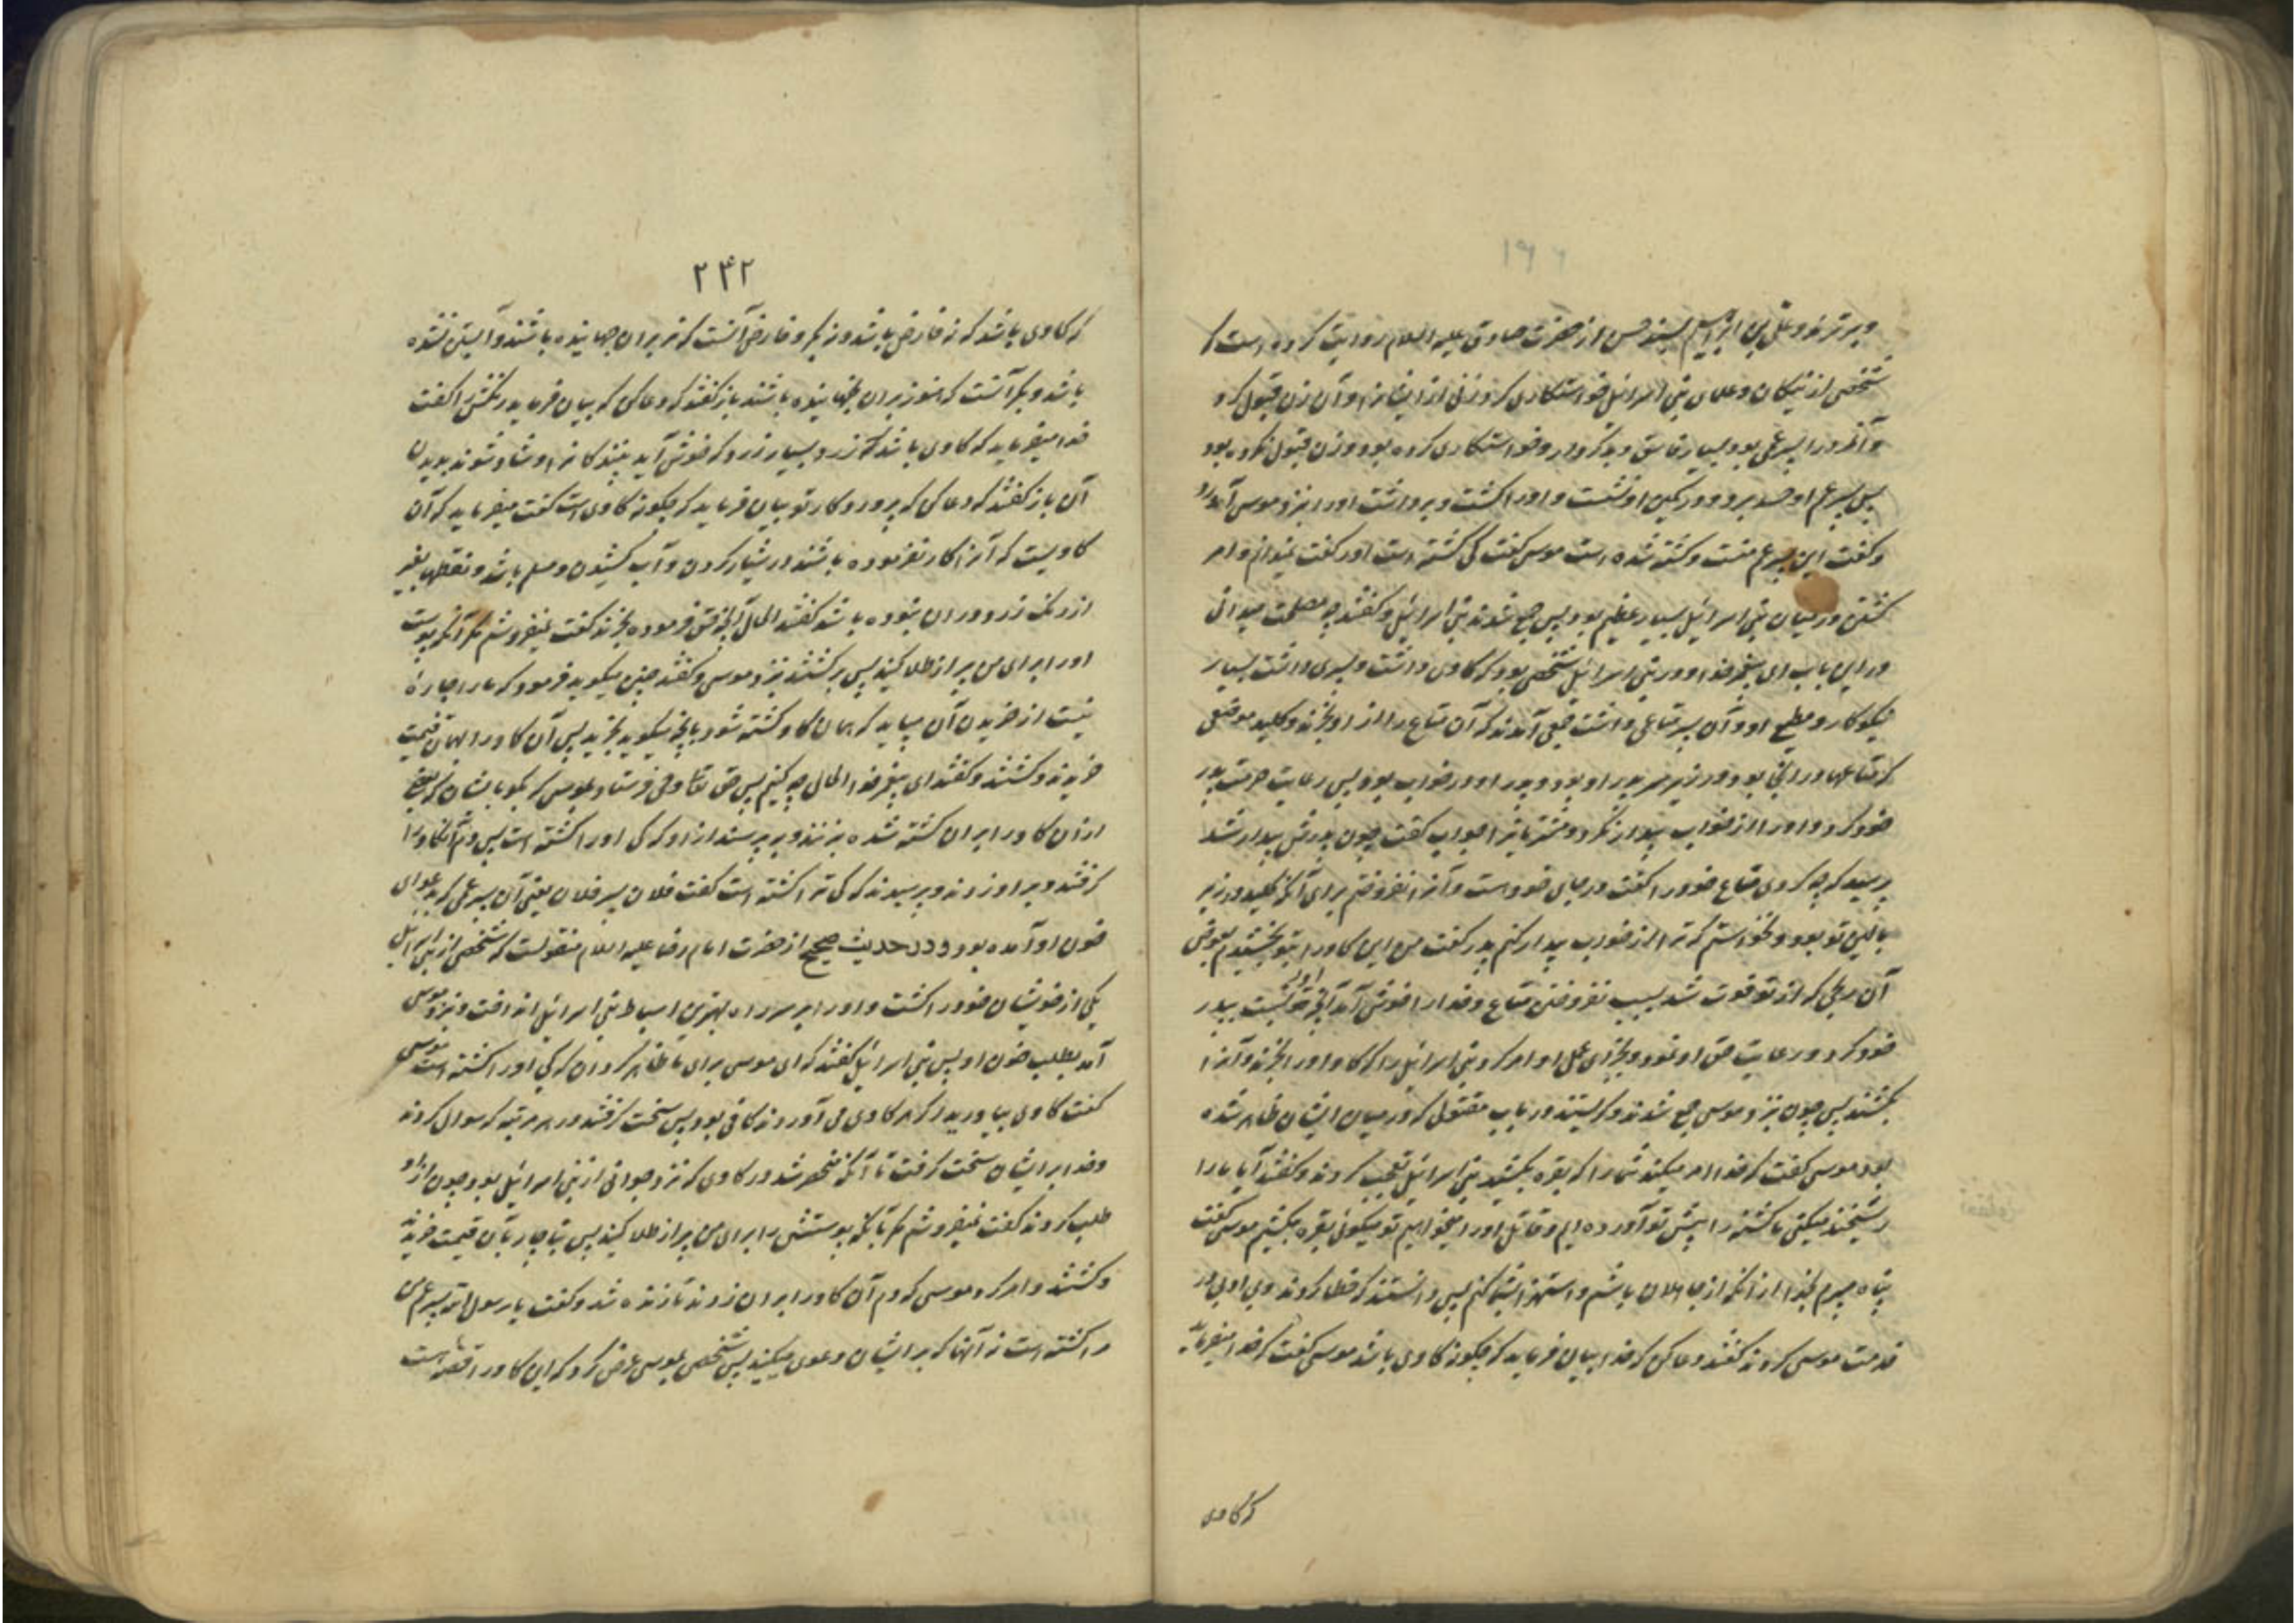 و برتر بود و علی بن ابراهیم بسند حسن از حضرت صادق علیه السلام روایت کرده است که
شخصی از نیکان و علمای بنی اسرائیل خواستکاری کرد زنی از ایشانرا و آن زن قبول کرد
و آنمرد را پسر عمی بود بسیار فاسق و بدکردار و خواستکاری کرده بود و زن قبول نکرده بود
پس پسر عم او حسد برد و در کمین او نشست و او را کشت و برداشت او را بنزد موسی آورد
و کفت این پسر عم منست و کشته شده است موسی کفت کی کشته است او را کفت نمیدانم و امر
کشتن در میان بنی اسرائیل بسیار عظیم بود پس جمع شدند بنی اسرائیل و کفتند چه مصلحت میدانی
در این باب ای پیغمبر خدا و در بنی اسرائیل شخصی بود که کاوی داشت و پسری داشت بسیار
نیکوکار و مطیع او و آن پسر متاعی داشت جمعی آمدند که آن متاع را از او بخرند و کلید موضعی
که متاعها در آنجا بود در زیر سر پدر او بود و پدر او در خواب بود پس رعایت حرمت پدر
خود کرد و او را از خواب بیدار نکرد و مشتریانرا جواب کفت چون پدرش بیدار شد
پرسید که چه کردی متاع خود را کفت در جای خود است و آنرا نفروختم برای آنکه کلید در زیر
بالین تو بود و نخواستم که ترا از خواب بیدار کنم پدر کفت من این کاو را بتو بخشیدم بعوض
آن ربحی که از تو فوت شد بسبب نفروختن متاع و خدا را خوش آمد آنچه او نسبت بپدر
خود کرد و رعایت حق او نمود و بجزای عمل او امر کرد بنی اسرائیل را که کاو او را بخرند و آنرا
بکشند پس چون نزد موسی جمع شدند و کریستند در باب مقتول که در میان ایشان ظاهر شده
بود موسی کفت که خدا امر میکند شما را که بقره بکشید بنی اسرائیل تعجب کردند و کفتند آیا ما را
ریشخند میکنی ما کشته را پیش تو آورده ایم و قاتل او را میخواهیم تو میکوئی بقره بکشیم موسی کفت
پناه میبرم بخدا از آنکه از جاهلان باشم و استهزا بشما کنم پس دانستند که خطا کردند و بی ادبی در
خدمت موسی کردند کفتند دعا کن که خدا بیان فرماید که چکونه کاوی باشد موسی کفت که خدا میفرماید
که کاوی
۲۴۲
که کاوی باشد که نه فارض باشد و نه بکر و فارض آنست که نر بر آن جهانیده باشند و آبستن نشده
باشد و بکر آنست که هنوز نر بر آن نجهانیده باشند باز کفتند که دعا کن که بیان فرماید رنکش را کفت
خدا میفرماید که کاوی باشد که زرد بسیار زرد که خوش آید بینندکانرا و شاد شوند بدیدن
آن باز کفتند که دعا کن که پروردکار تو بیان فرماید که چکونه کاوی است کفت میفرماید که آن
کاویست که آنرا کار نفرموده باشند در شیار کردن و آب کشیدن و مسلم باشد و نقطهای بغیر
از رنک زرد در آن نبوده باشد کفتند الحال آنچه حق فرموده بخرند کفت نمیفروشم مکر آنکه پوست
او را برای من پر از طلا کنید پس برکشتند نزد موسی و کفتند چنین میکوید فرمود که ما را چارهٔ
نیست از خریدن آن میباید که همان کاو کشته شود بآنچه میکوید بخرید پس آن کاو را بهمان قیمت
خریدند و کشتند و کفتند ای پیغمبر خدا الحال چه کنیم پس حق تعالی وحی فرستاد بموسی که بکو بایشان که بعضی
از آن کاو را بر آن کشته شده بزنند و بپرسند از او که کی او را کشته است پس دم آنکاو را
کرفتند و بر او زدند و پرسیدند که کی ترا کشته است کفت فلان پسر فلان یعنی آن پسر عمی که بدعوای
خون او آمده بود و در حدیث صحیح از حضرت امام رضا علیه السلام منقولست که شخصی از بنی اسرائیل
یکی از خویشان خود را کشت و او را بر سر راه بهترین اسباط بنی اسرائیل انداخت و بنزد موسی
آمد بطلب خون او پس بنی اسرائیل کفتند که ای موسی برای ما ظاهر کردان که کی او را کشته است موسی
کفت کاوی بیاورید اکر هر کاوی می آوردند کافی بود پس سخت کرفتند و در هر مرتبه که سوال کردند
و خدا بر ایشان سخت کرفت تا آنکه منحصر شد در کاوی که نزد جوانی از بنی اسرائیل بود چون از او
طلب کردند کفت نمیفروشم مکر بآنکه پوستش را برای من پر از طلا کنید پس بناچار بآن قیمت خریدند
و کشتند و امر کرد موسی که دم آن کاو را بر آن زدند تا زنده شد و کفت یا رسول الله پسر عم من
مرا کشته است نه آنها که بر ایشان دعوی میکنید پس شخصی بموسی عرض کرد که این کاو را قصه است